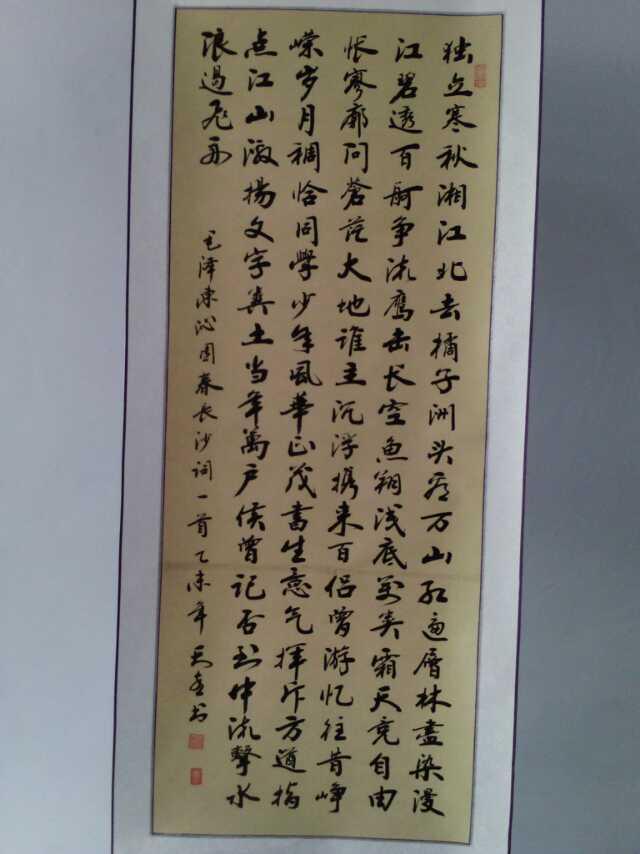 独立寒秋湘江北去橘子洲头看万山红遍層林盡染漫
江碧透百舸争流鹰击长空鱼翔浅底万类霜天竞自由
怅寥廓问蒼茫大地谁主沉浮携来百侣曾游忆往昔峥
嵘岁月稠恰同學少年風華正茂書生意气挥斥方遒指
点江山激揚文字粪土当年萬户侯曾记否到仲流擊水
浪遏飞舟
毛泽东沁园春长沙词一首乙未年书